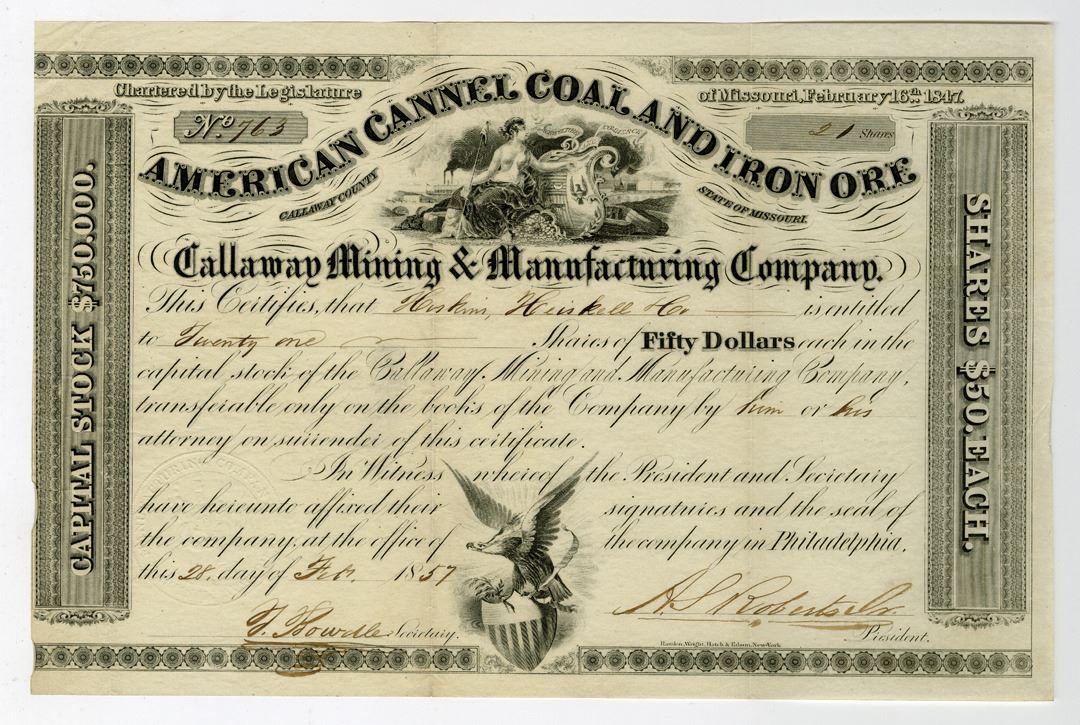 Chartered by the Legislature of Missouri, February 16th. 1847.
No. 763
21 Shares
AMERICAN CANNEL COAL AND IRON ORE
CALLAWAY COUNTY
STATE OF MISSOURI.
Callaway Mining & Manufacturing Company.
This Certifies, that Hoskins, Heiskell & Co is entitled
to Twenty one Shares of Fifty Dollars each in the
capital stock of the Callaway Mining and Manufacturing Company,
transferable only on the books of the Company by him or his
attorney on surrender of this certificate.
In Witness whereof the President and Secretary
have hereunto affixed their signatures and the seal of
the company, at the office of the company in Philadelphia,
this 28. day of Feb. 1857
Secretary.
A S Roberts Jr.
President.
Hatch & Edson, New-York
CAPITAL STOCK $750.000.
SHARES $50. EACH.